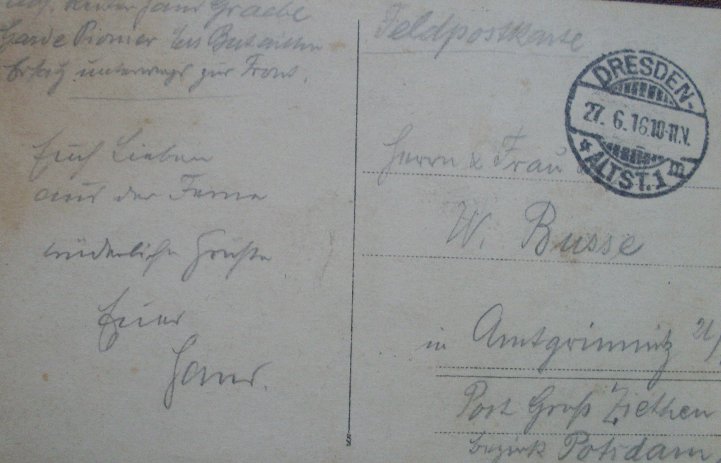 Hans Graebe
Garde Pionier Ers Bataillon
Ersatz unterwegs zur Front.
Euch Lieben
aus der Ferne
Grüße
Euer
Hans.
Feldpostkarte
DRESDEN-
27. 6. 16. 10-11.V.
ALTST. 1
Herrn & Frau
W. Busse
in Amtgrimnitz
Post Groß Ziethen
bezirk Potsdam.